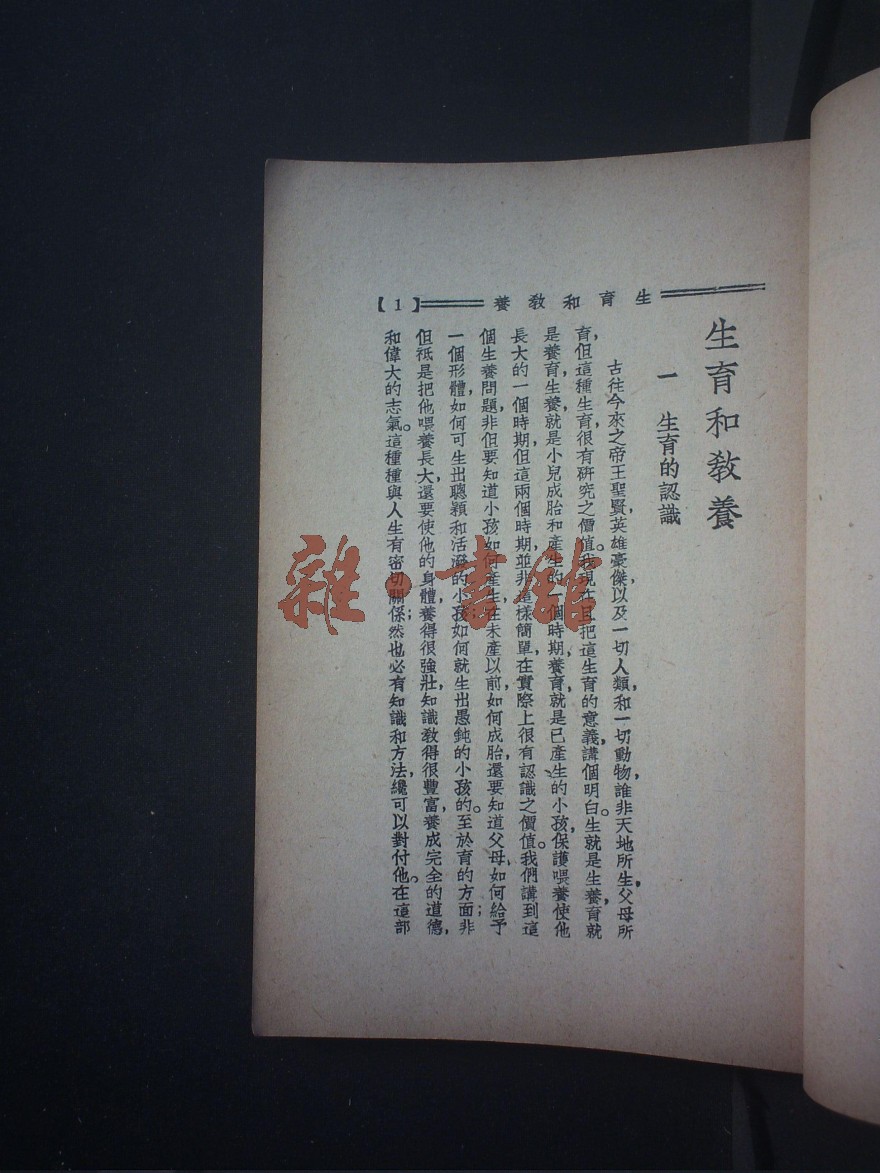 生育和敎養
【1】
生育和敎養
一 生育的認識
古往今來之帝王聖賢，英雄豪傑以及一切人類，和一切動物，誰非天地所生，父母所
育，但這種生育，很有硏究之價值。我現在且把這生育的意義，講個明白。生就是生養，育就
是養育，生養，就是小兒成胎和產生的一個時期，養育就是已產生的小孩，保護喂養使他
長大的一個時期，但這兩個時期，並非這樣簡單，在實際上很有認識之價值。我們講到這
個生養問題，非但要知道小孩如何產生，在未產以前，如何成胎，還要知道父母，如何給予
一個形體，如何可生出聰穎和活潑的小孩；如何就生出愚鈍的小孩的。至於育的方面；非
但祗是把他喂養長大，還要使他的身體，養得很強壯，知識敎得很豐富，養成完全的道德，
和偉大的志氣。這種種與人生有密切關係；然也必有知識和方法，纔可以對付他。在這部
雜·書館